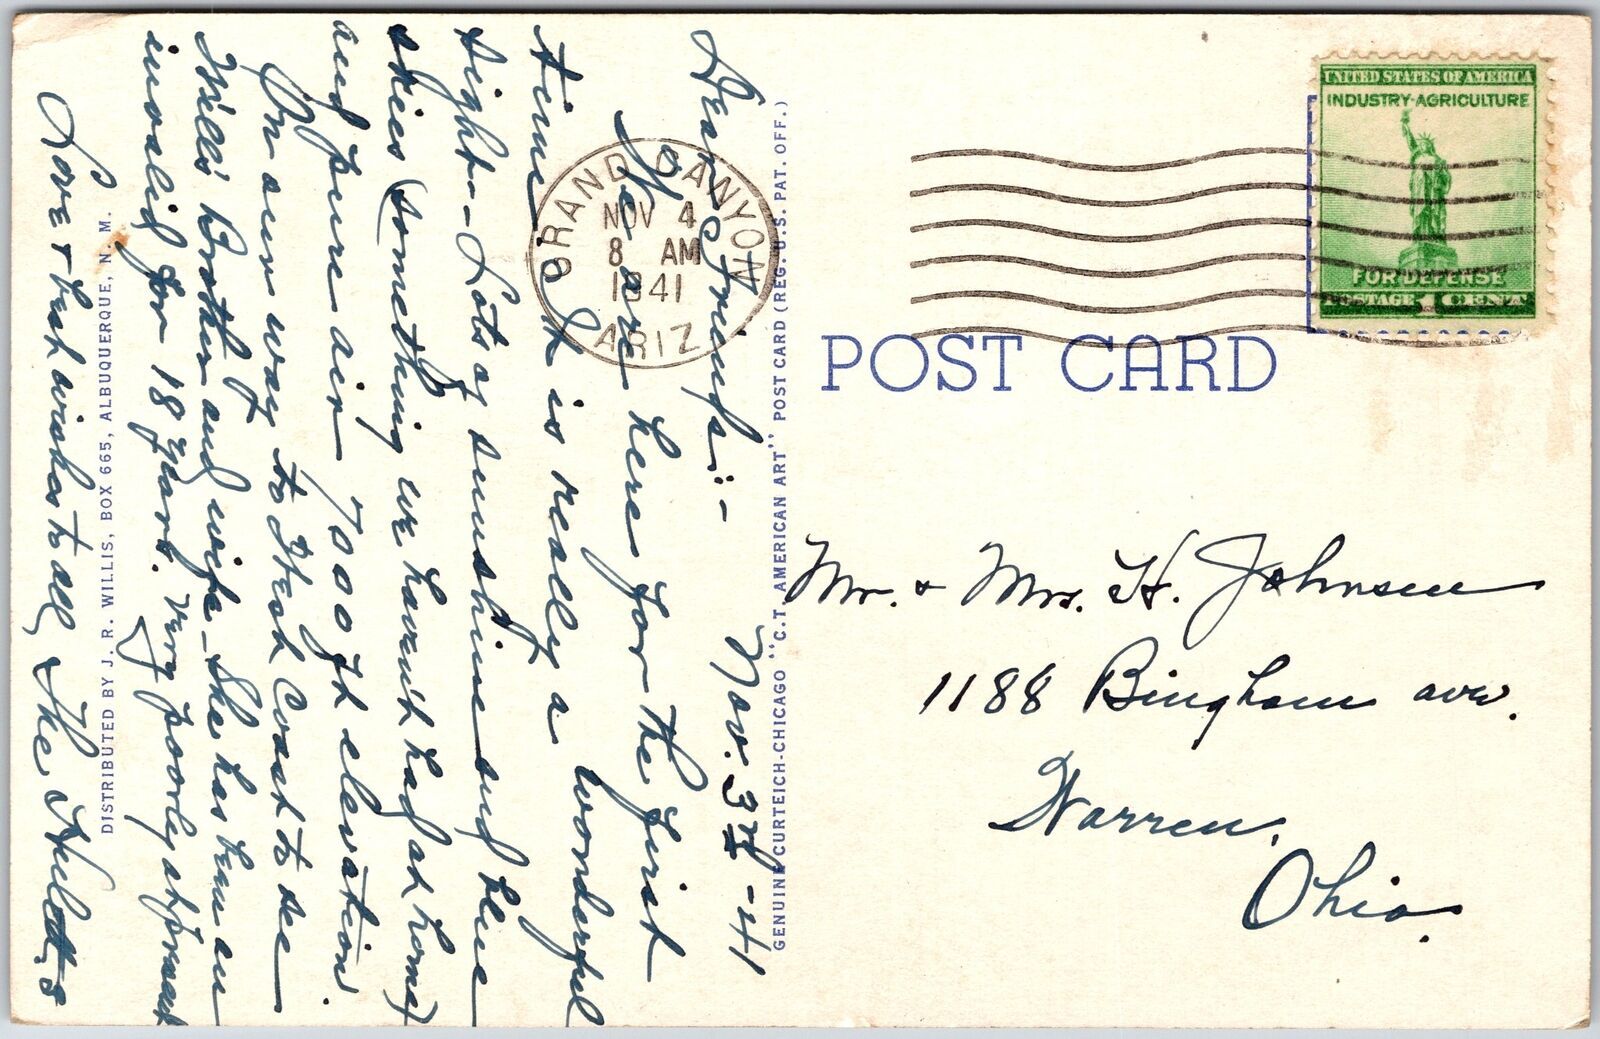 Dear Friends:- Nov. 3rd-41
We are here for the first
time. It is really a wonderful
sight - Lots of sunshine and blue
skies (something we havent had at home)
and pure air 7000 ft elevation.
On our way to West Coast to see
Will's Brother and wife - She has been an
invalid for 18 years. Very poorly at present
Love & best wishes to all, The Huletts
DISTRIBUTED BY J. R. WILLIS, BOX 665, ALBUQUERQUE, N. M.
GRAND CANYON
NOV 4
8 AM
1941
ARIZ.
GENUINE CURTEICH-CHICAGO "C.T. AMERICAN ART" POST CARD (REG. U.S. PAT. OFF.)
UNITED STATES OF AMERICA
INDUSTRY-AGRICULTURE
FOR DEFENSE
POSTAGE 1 CENT
POST CARD
Mr. & Mrs. H. Johnson
1188 Bingham ave.
Warren,
Ohio.